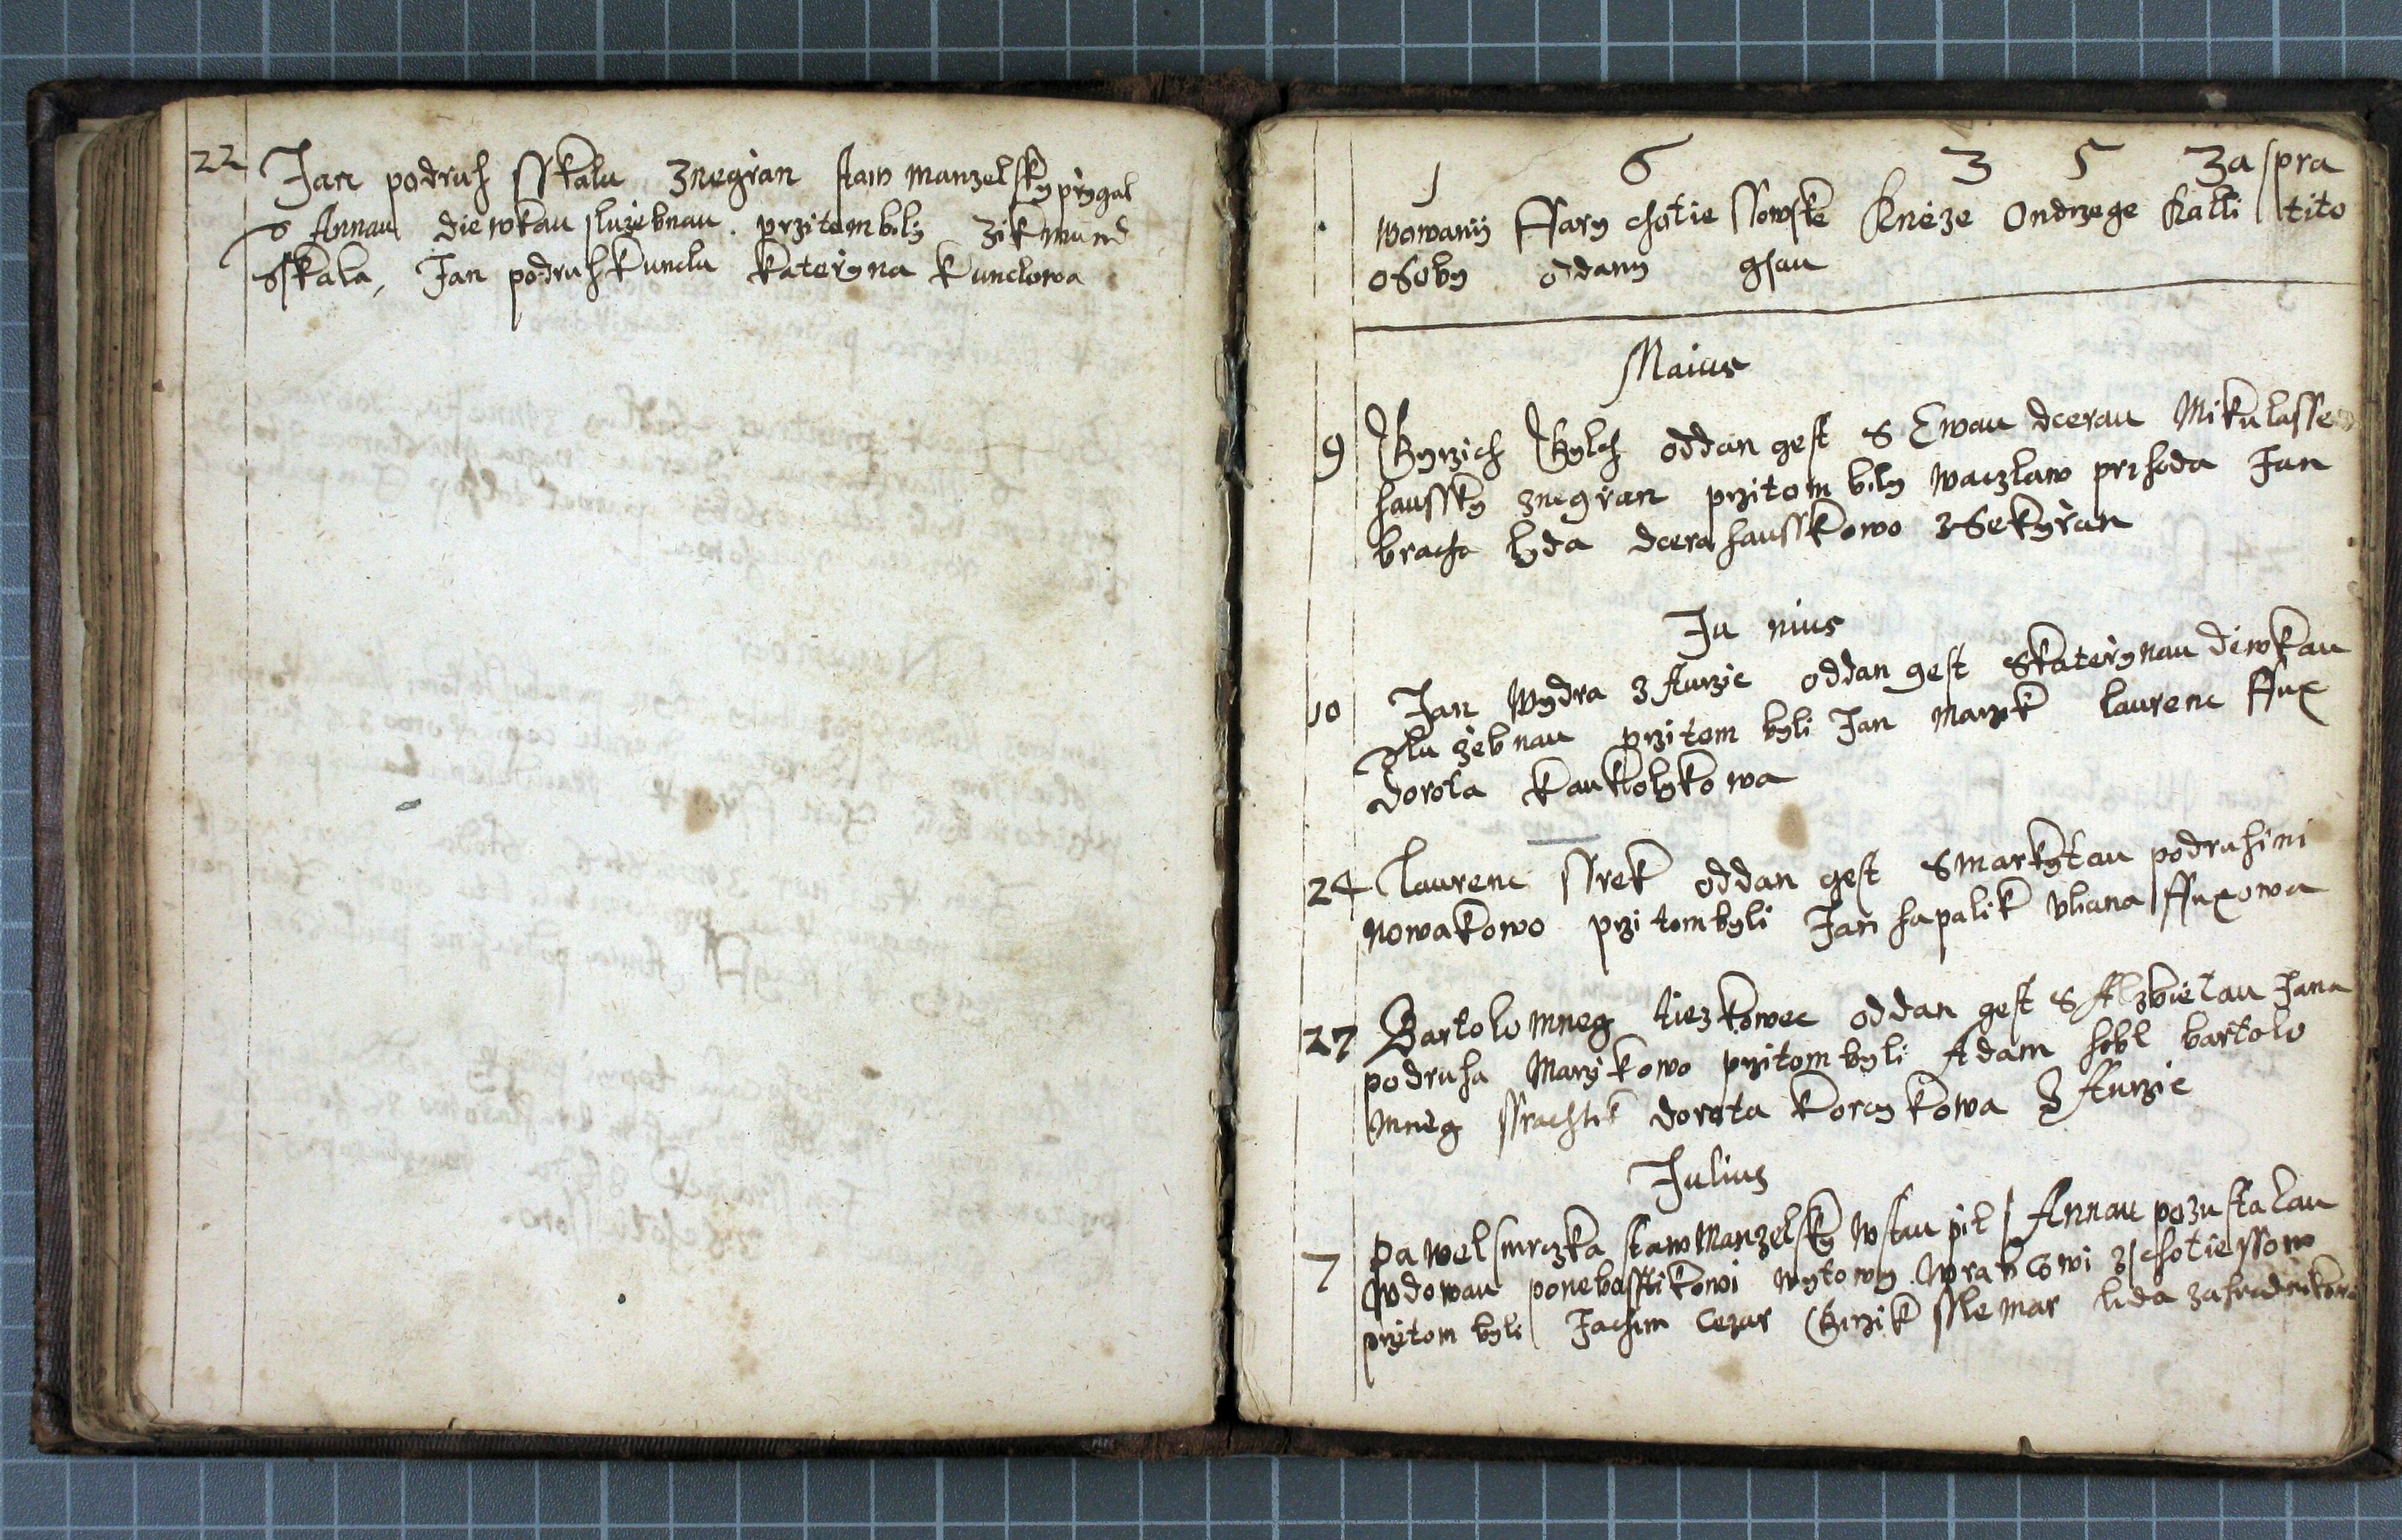 22 Jan podruh Skalu Znegřan staw manzelsky prygal
S Annau diewkau služebnau. przitombily Zikmund
Sskala, Jan podruh Kunclu Kateřyna Kunclowa
1 6 3 5 Za spra
wowanij Ffary chotiessowske Kněze Ondrzege Kalli tito
osoby oddany gsau
Maius
9 Gyrzich oddan gest S Ewau dcerau Mikulasse
haussky znegřan przitom bily Waczlaw prihoda Jan
bracha lyda dcera hausskowo z Sekyřan
Junius
10 Jan Wydra z Aurzie oddan gest S Kateřynau děwkau
služebnau przitom byli Jan Marzik laurenc Ffux
dorota Kauklolykowa
24 laurenc Srek oddan gest S Markytau podruhini
nowakowo przitom byli Jan hapalik Uliana Ffuxowa
27 Bartolomneg oddan gest S Alzbietau Jana
podruha Maržikowo przitom byli Adam bartolo
mneg Ssrachtik dorota Korcykowa Z Aurzie
Julius
7 Pawel smrczka staw Manzelsky Wstaupil s Annau pozustalau
Wdowau Wytowy Wrabcowi z chotiessow
przitom byli Jachim Cezar Girzik Sslemar lida zahradnikowa